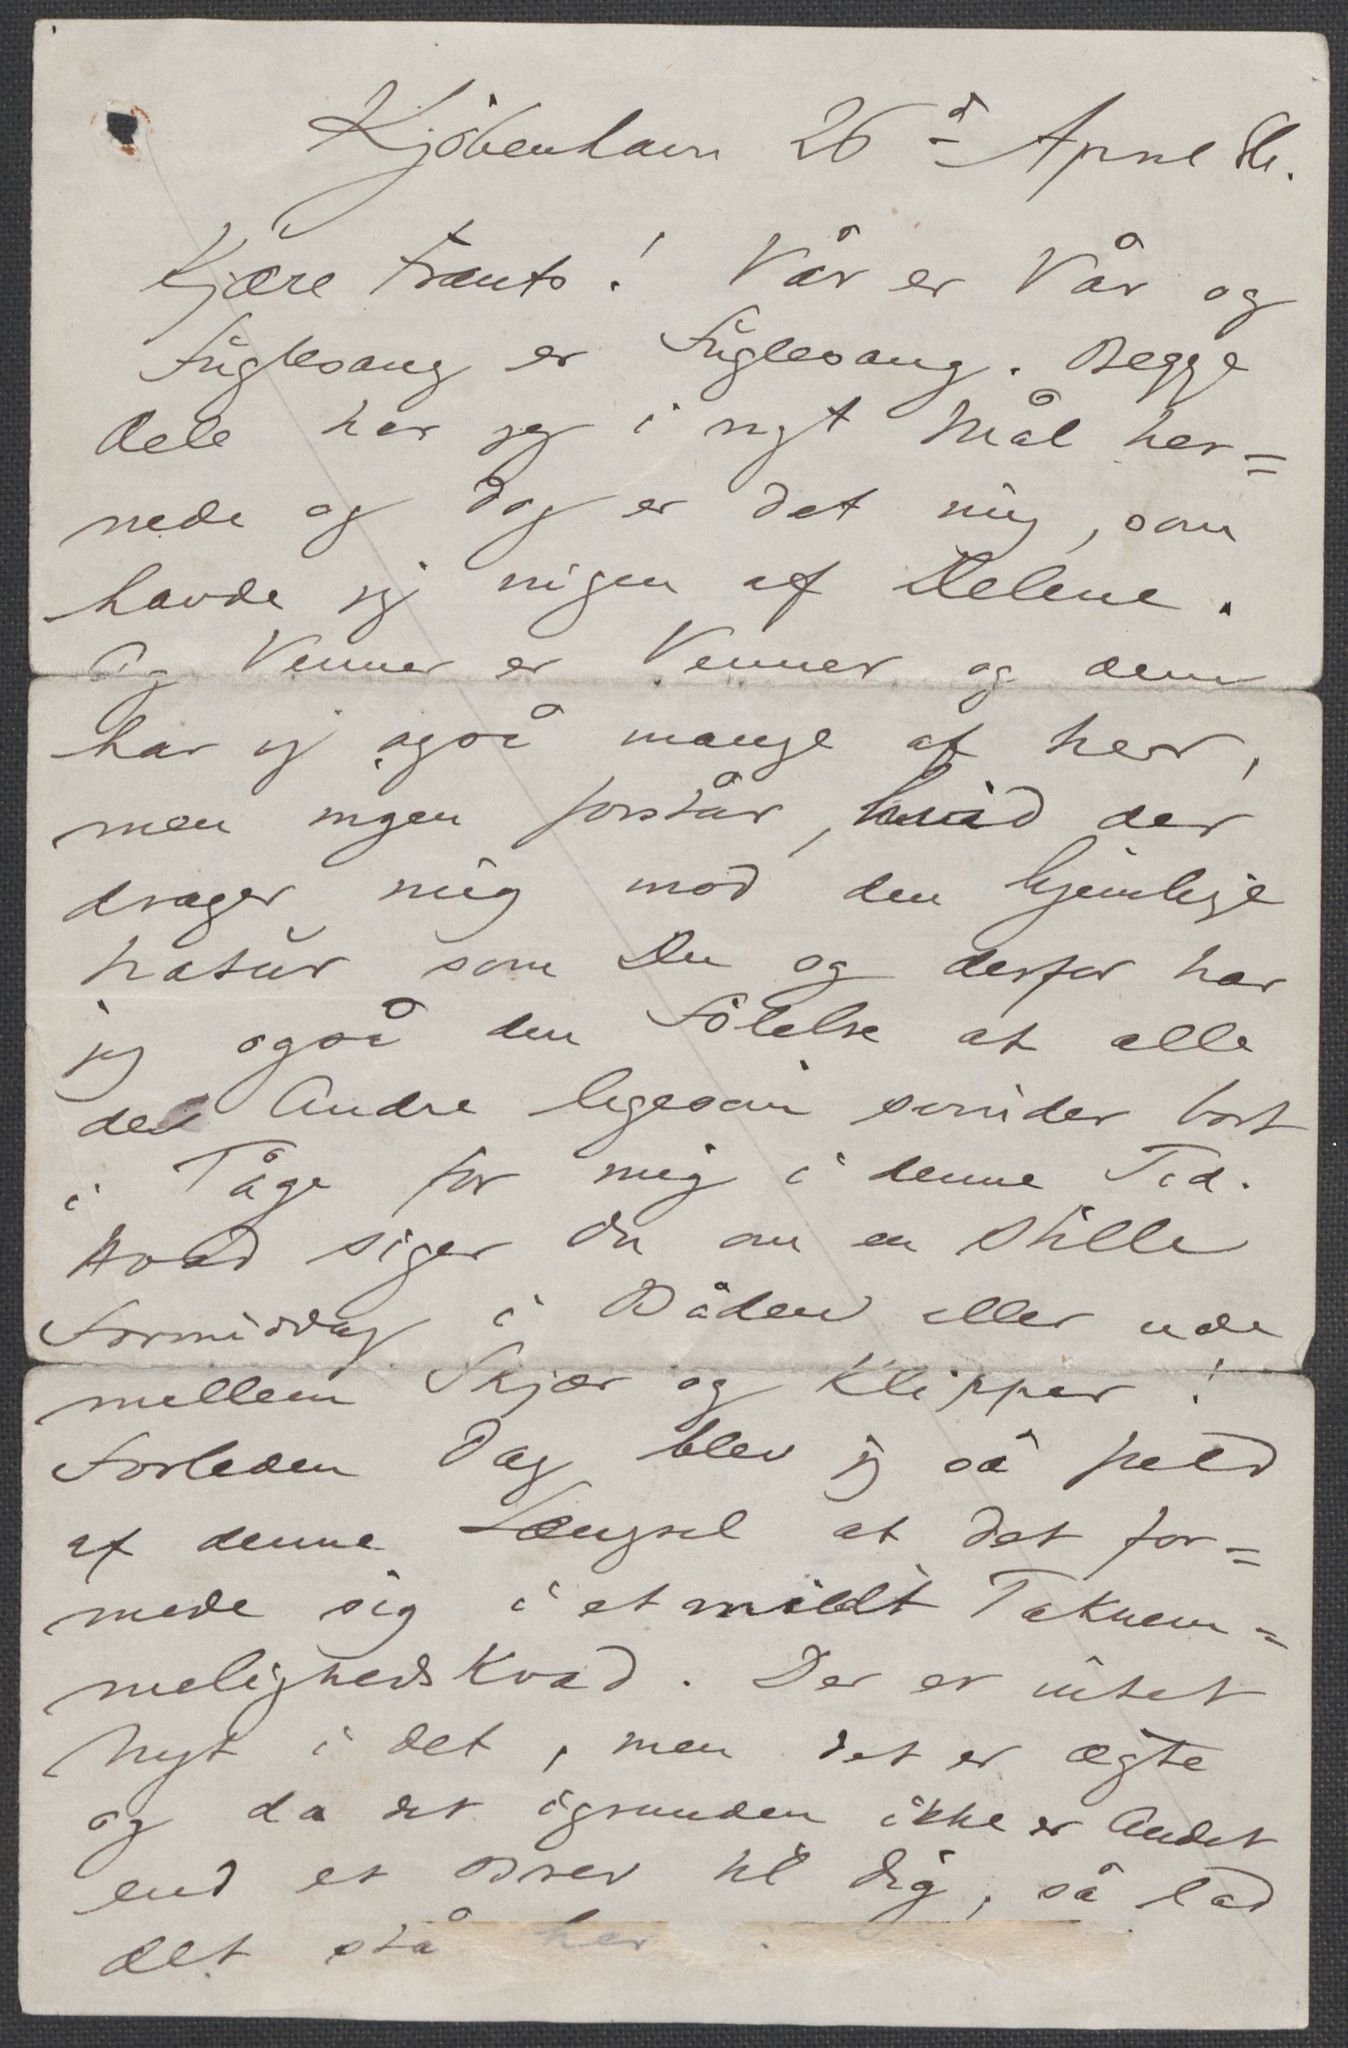 Kjöbenhavn 26d April 86.
Kjære Frants! Vår er Vår og
Fuglesang er Fuglesang. Begge
Dele har jeg i rigt Mål her=
nede og dog er det mig, som
havde jeg ingen af Delene.
Og Venner er Venner og dem
har jeg også mange af her,
men ingen forstår, hvad der
drager mig mod den hjemlige
Natur som Du og derfor har
jeg også den Fölelse at alle
de Andre ligesom svinder bort
i Tåge for mig i denne Tid.
Hvad siger Du om en stille
Formiddag i Båden eller ude
mellem Skjær og Klipper!
Forleden Dag blev jeg så fuld
af denne Længsel at det for=
mede sig i et mildt Taknem=
melighedskvad. Der er intet
Nyt i det, men det er ægte
og da det igrunden ikke er Andet
end et Brev til Dig, så lad
det stå her